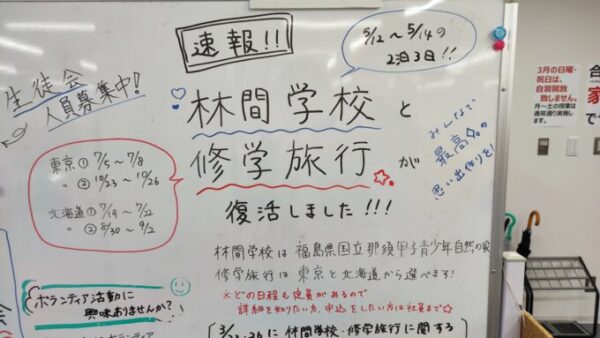 速報!!
5/12~5/14の
2泊3日!!
生徒会
人員募集中!
林間学校と
修学旅行が
復活しました!!!
みんなで
最高の
思い出作りを!
東京①7/5~7/8
〃②10/23~10/26
北海道①7/19~7/22
〃②8/30~9/2
林間学校は福島県国立那須甲子青少年自然の家
修学旅行は東京と北海道から選べます!
※どの日程も定員があるので
詳細を知りたい方、申込をしたい方は社員まで☆
ボランティア活動に
興味ありませんか?
ボランティア
林間学校・修学旅行に関する
3月の日曜・
祝日は、
自習開放
致しません。
月~土の授業は
通常通り実施し
ます。